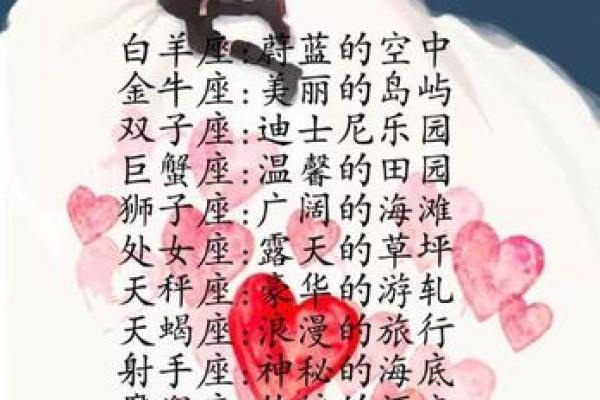 白羊座:蔚蓝的空中
金牛座:美丽的岛屿
双子座:迪士尼乐园
巨蟹座:温馨的田园
狮子座:广阔的海滩
处女座:露天的草坪
天秤座:豪华的游轧
天蝎座:浪漫的旅行
射手座:神秘的海底